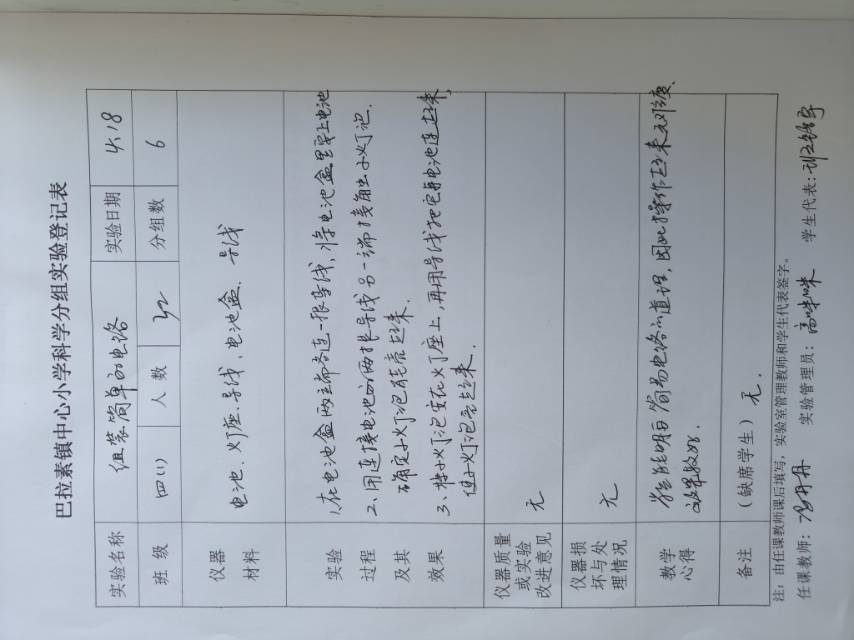 巴拉素镇中心小学科学分组实验登记表
实验名称 组装简单的电路 实验日期 4.18
班 级 四(1) 人 数 32 分组数 6
仪器
材料
电池、灯座、导线、电池盒、导线
实验
过程
及其
效果
1、在电池盒两端各连一根导线,将电池盒里安上电池
2、用连接电池的两根导线另一端接触小灯泡,
确定小灯泡能亮起来.
3、将小灯泡安在灯座上,再用导线把它和电池连起来,
使小灯泡亮起来.
仪器质量
或实验
改进意见
无
仪器损
坏与处
理情况
无
教学
心得
学生能明白简易电路的道理,因此操作起来无难度、
效果较好.
备注 (缺席学生)无.
注:由任课教师课后填写,实验室管理教师和学生代表签字。
任课教师: 实验管理员: 学生代表: